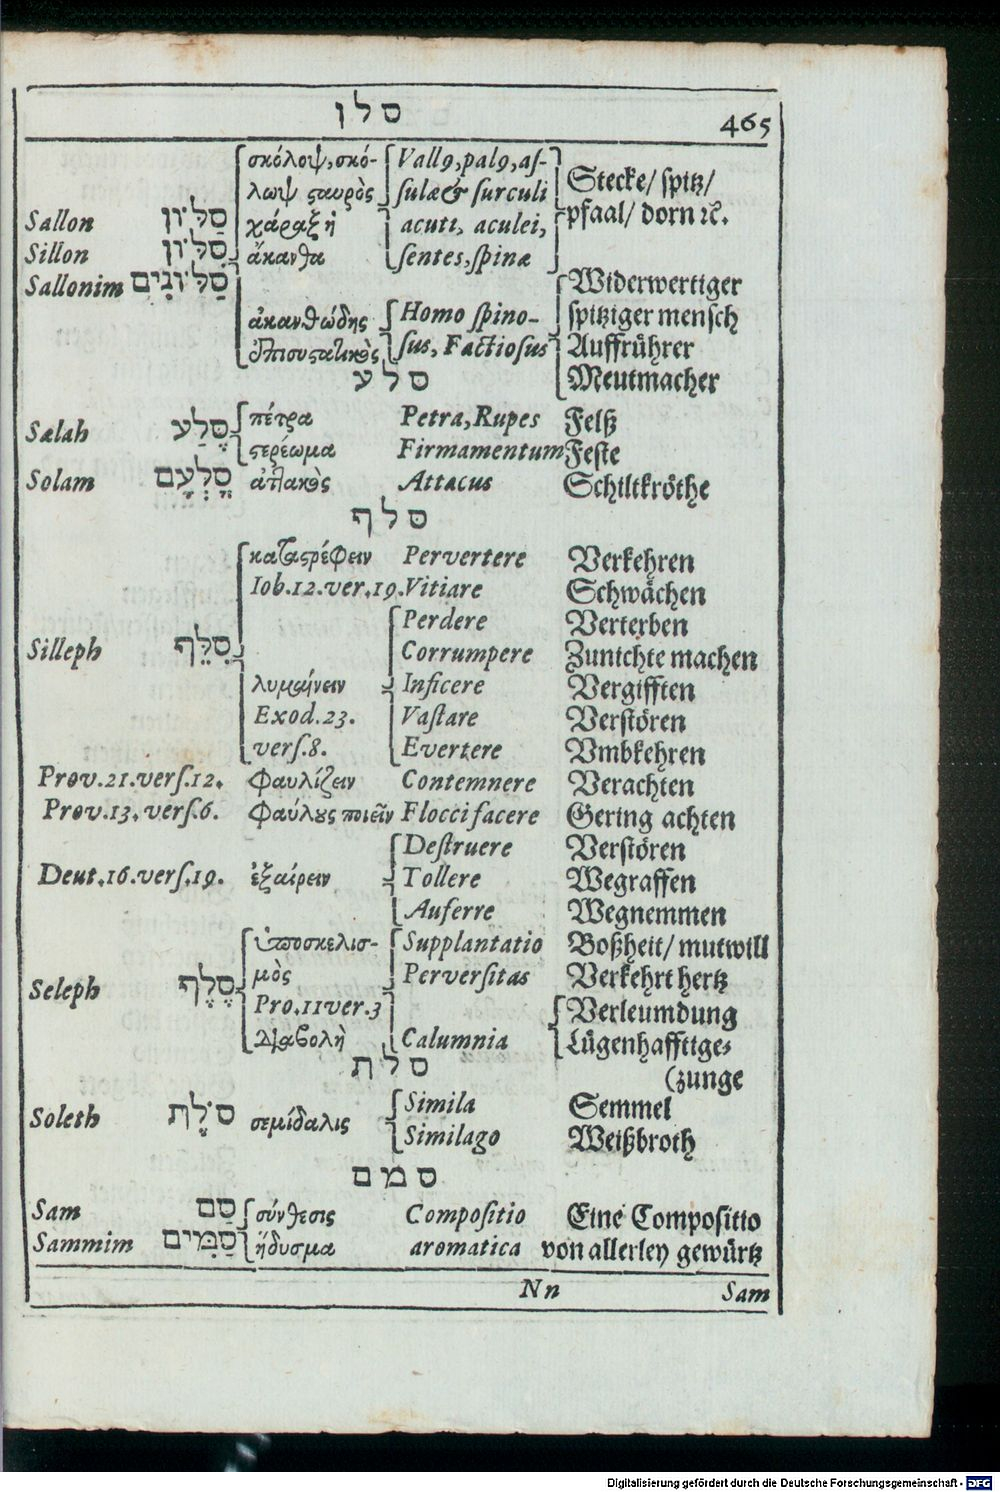 סלן 465
σκόλοψ, σκό- Vallꝯ, palꝯ, aſ-
λωψ ϛαυρὸς ſulæ & ſurculi Stecke/ ſpitz/
Sallon סַלּוֹן χάραξ ἡ acuti, aculei, pfaal/ dorn ꝛc.
Sillon סִלּוֹן ἄκανθα ſentes, ſpinæ
Sallonim סַלּוֹנִים Widerwertiger
ἀκανθώδης Homo ſpino- ſpitziger menſch
ſus, Factioſus Auffrührer
סלע Meutmacher
πέτρα Petra, Rupes Felß
Sælah סֶלַע ϛερέωμα Firmamentum Feſte
Solam סָלְעָם ἀττακὸς Attacus Schiltkröthe
סלף
καταϛρέφειν Pervertere Verkehren
Iob.12.ver.19. Vitiare Schwächen
Perdere Verterben
Silleph סִלֵּף Corrumpere Zunichte machen
λυμαίνειν Inficere Vergifften
Exod.23. Vaſtare Verſtören
verſ.8. Evertere Vmbkehren
Prov.21.verſ.12. φαυλίζειν Contemnere Verachten
Prov.13.verſ.6. φαύλȣς ποιεῖν Floccifacere Gering achten
Deſtruere Verſtören
Deut.16.verſ.19. ἐξαίρειν Tollere Wegraffen
Auferre Wegnemmen
ὑποσκελισ- Supplantatio Boßheit/ mutwill
Seleph סֶלֶף μὸς Perverſitas Verkehrt hertz
Pro.11 ver.3 Verleumdung
Διαβολὴ Calumnia Lügenhafftige-
סלת (zunge
Soleth סֹלֶת σεμίδαλις Simila Semmel
Similago Weißbroth
סמם
Sam סַם σύνθεσις Compoſitio Eine Compoſitio
Sammim סַמִּים ἥδυσμα aromatica von allerley gewürtz
Nn Sam
Digitalisierung gefördert durch die Deutsche Forschungsgemeinschaft - DFG